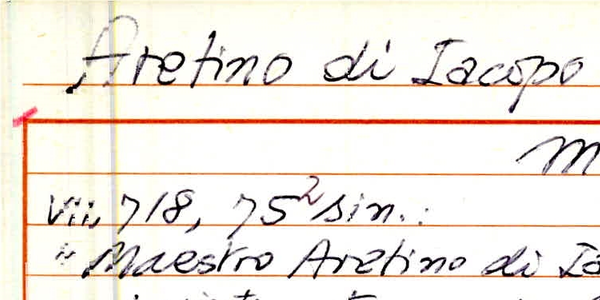 Aretino di Iacopo
m
vii, 718, 75² sin.:
"Maestro Aretino di Ia